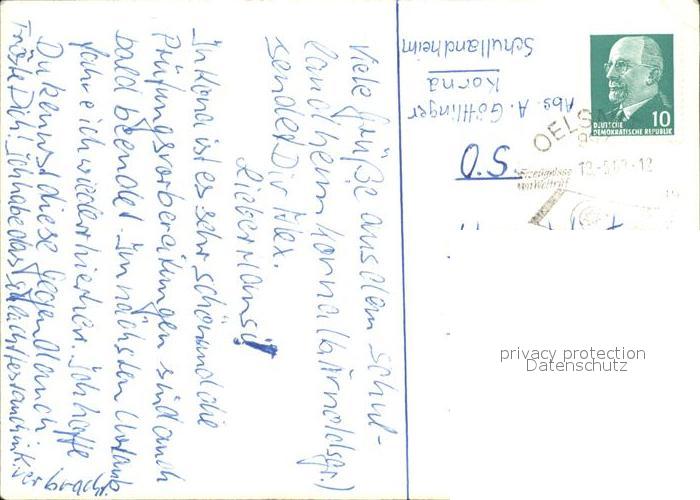 Viele Grüße aus dem Schul-
landheim Korna (b. Arnoldsgr.)
sendet Dir Alex.
Lieber Hansi!
In Korna ist es sehr schön und die
Prüfungsvorbereitungen sind auch
bald beendet. Im nächsten Urlaub
fahre ich wieder hierher. Ich hoffe
Du kennst diese Gegend auch
Tröste Dich! Ich habe das
bracht.
Abs. A. Göttlinger
Korna
Schullandheim
S.O.
10
DEUTSCHE
DEMOKRATISCHE REPUBLIK
OELSN
12
privacy protection
Datenschutz